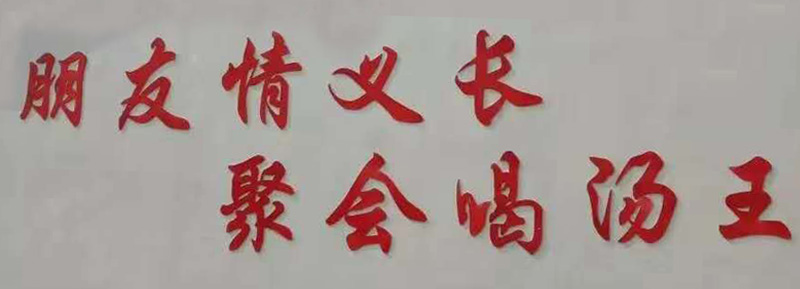 朋友情义长
聚会喝汤王